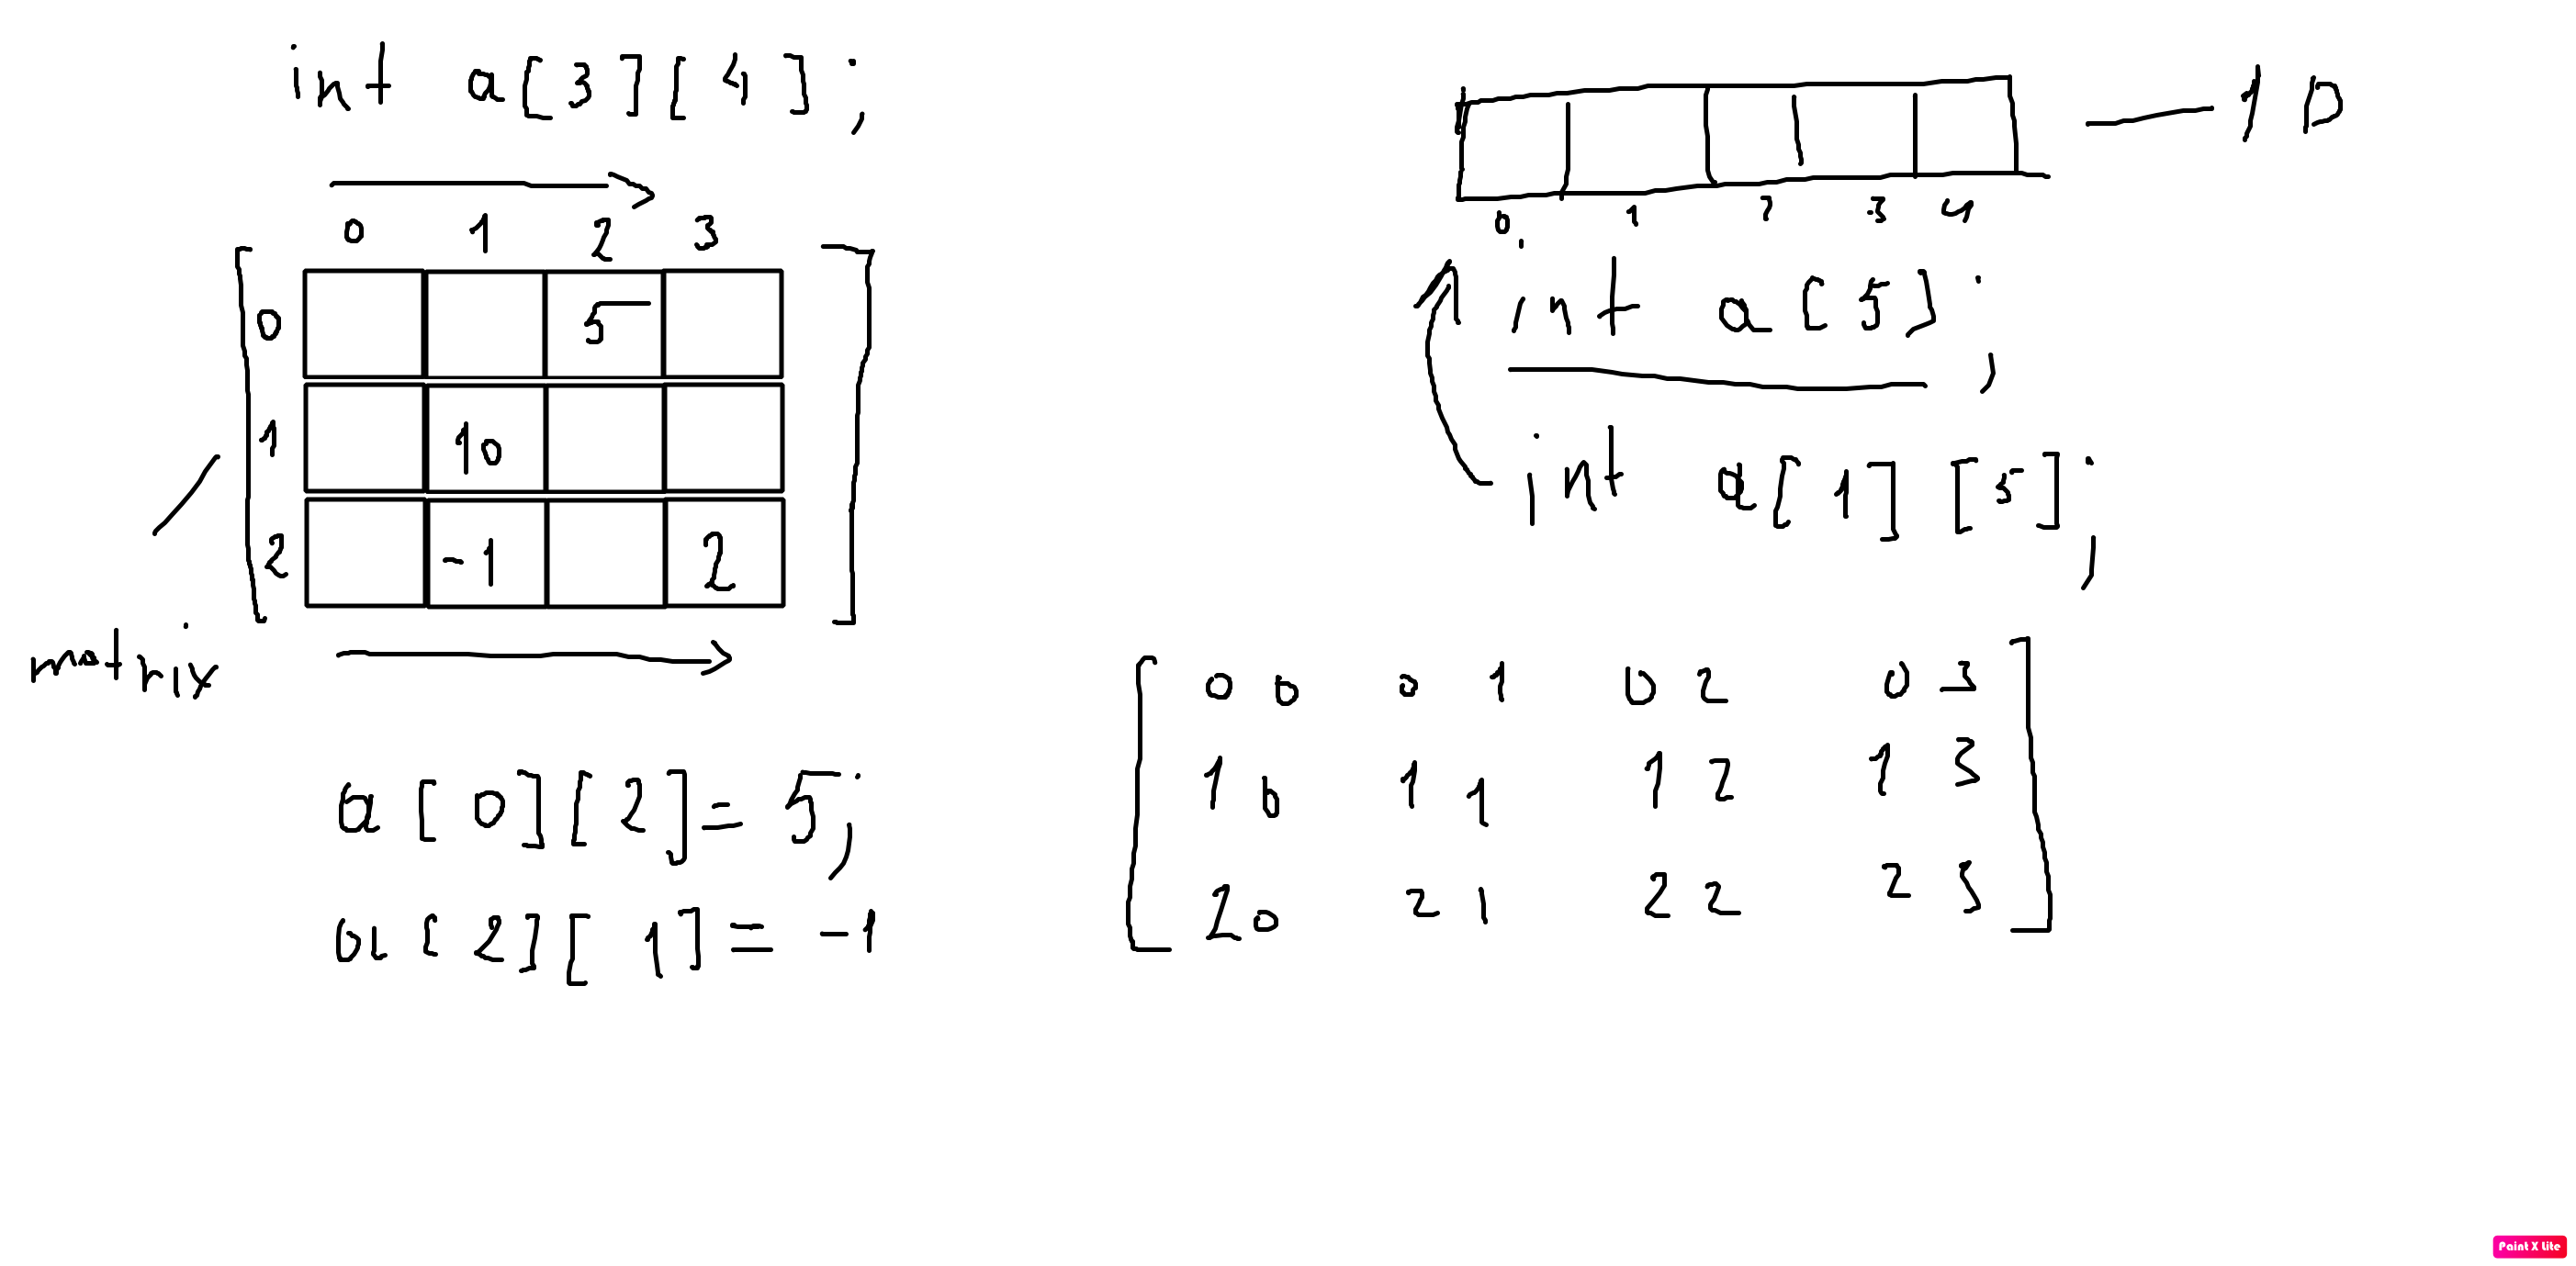 int a[3][4];
0 1 2 3
0 5
1 10
2 -1 2
matrix
a[0][2]= 5;
a[2][1]= -1
1D
0 1 2 3 4
int a[5];
int a[1][5];
00 01 02 03
10 11 12 13
20 21 22 23
Paint X Lite